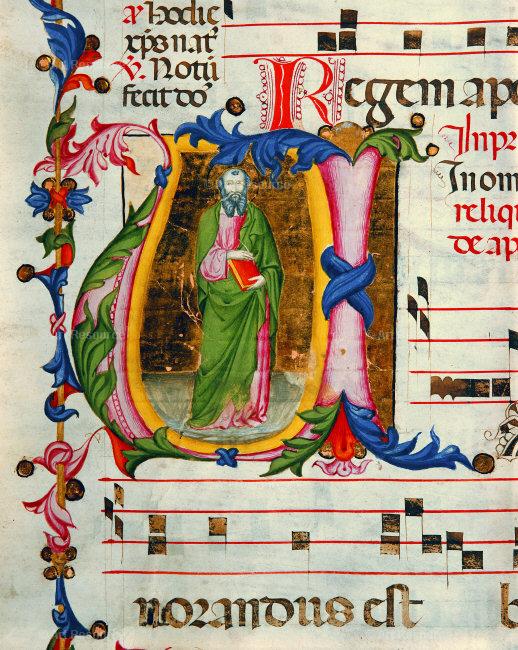 ℟ Hodie
xp̄s nat᷒
℣. Notū
fecit do᷒
Regem apo
Impr
In om
reliq
de ap
U
norandus est b